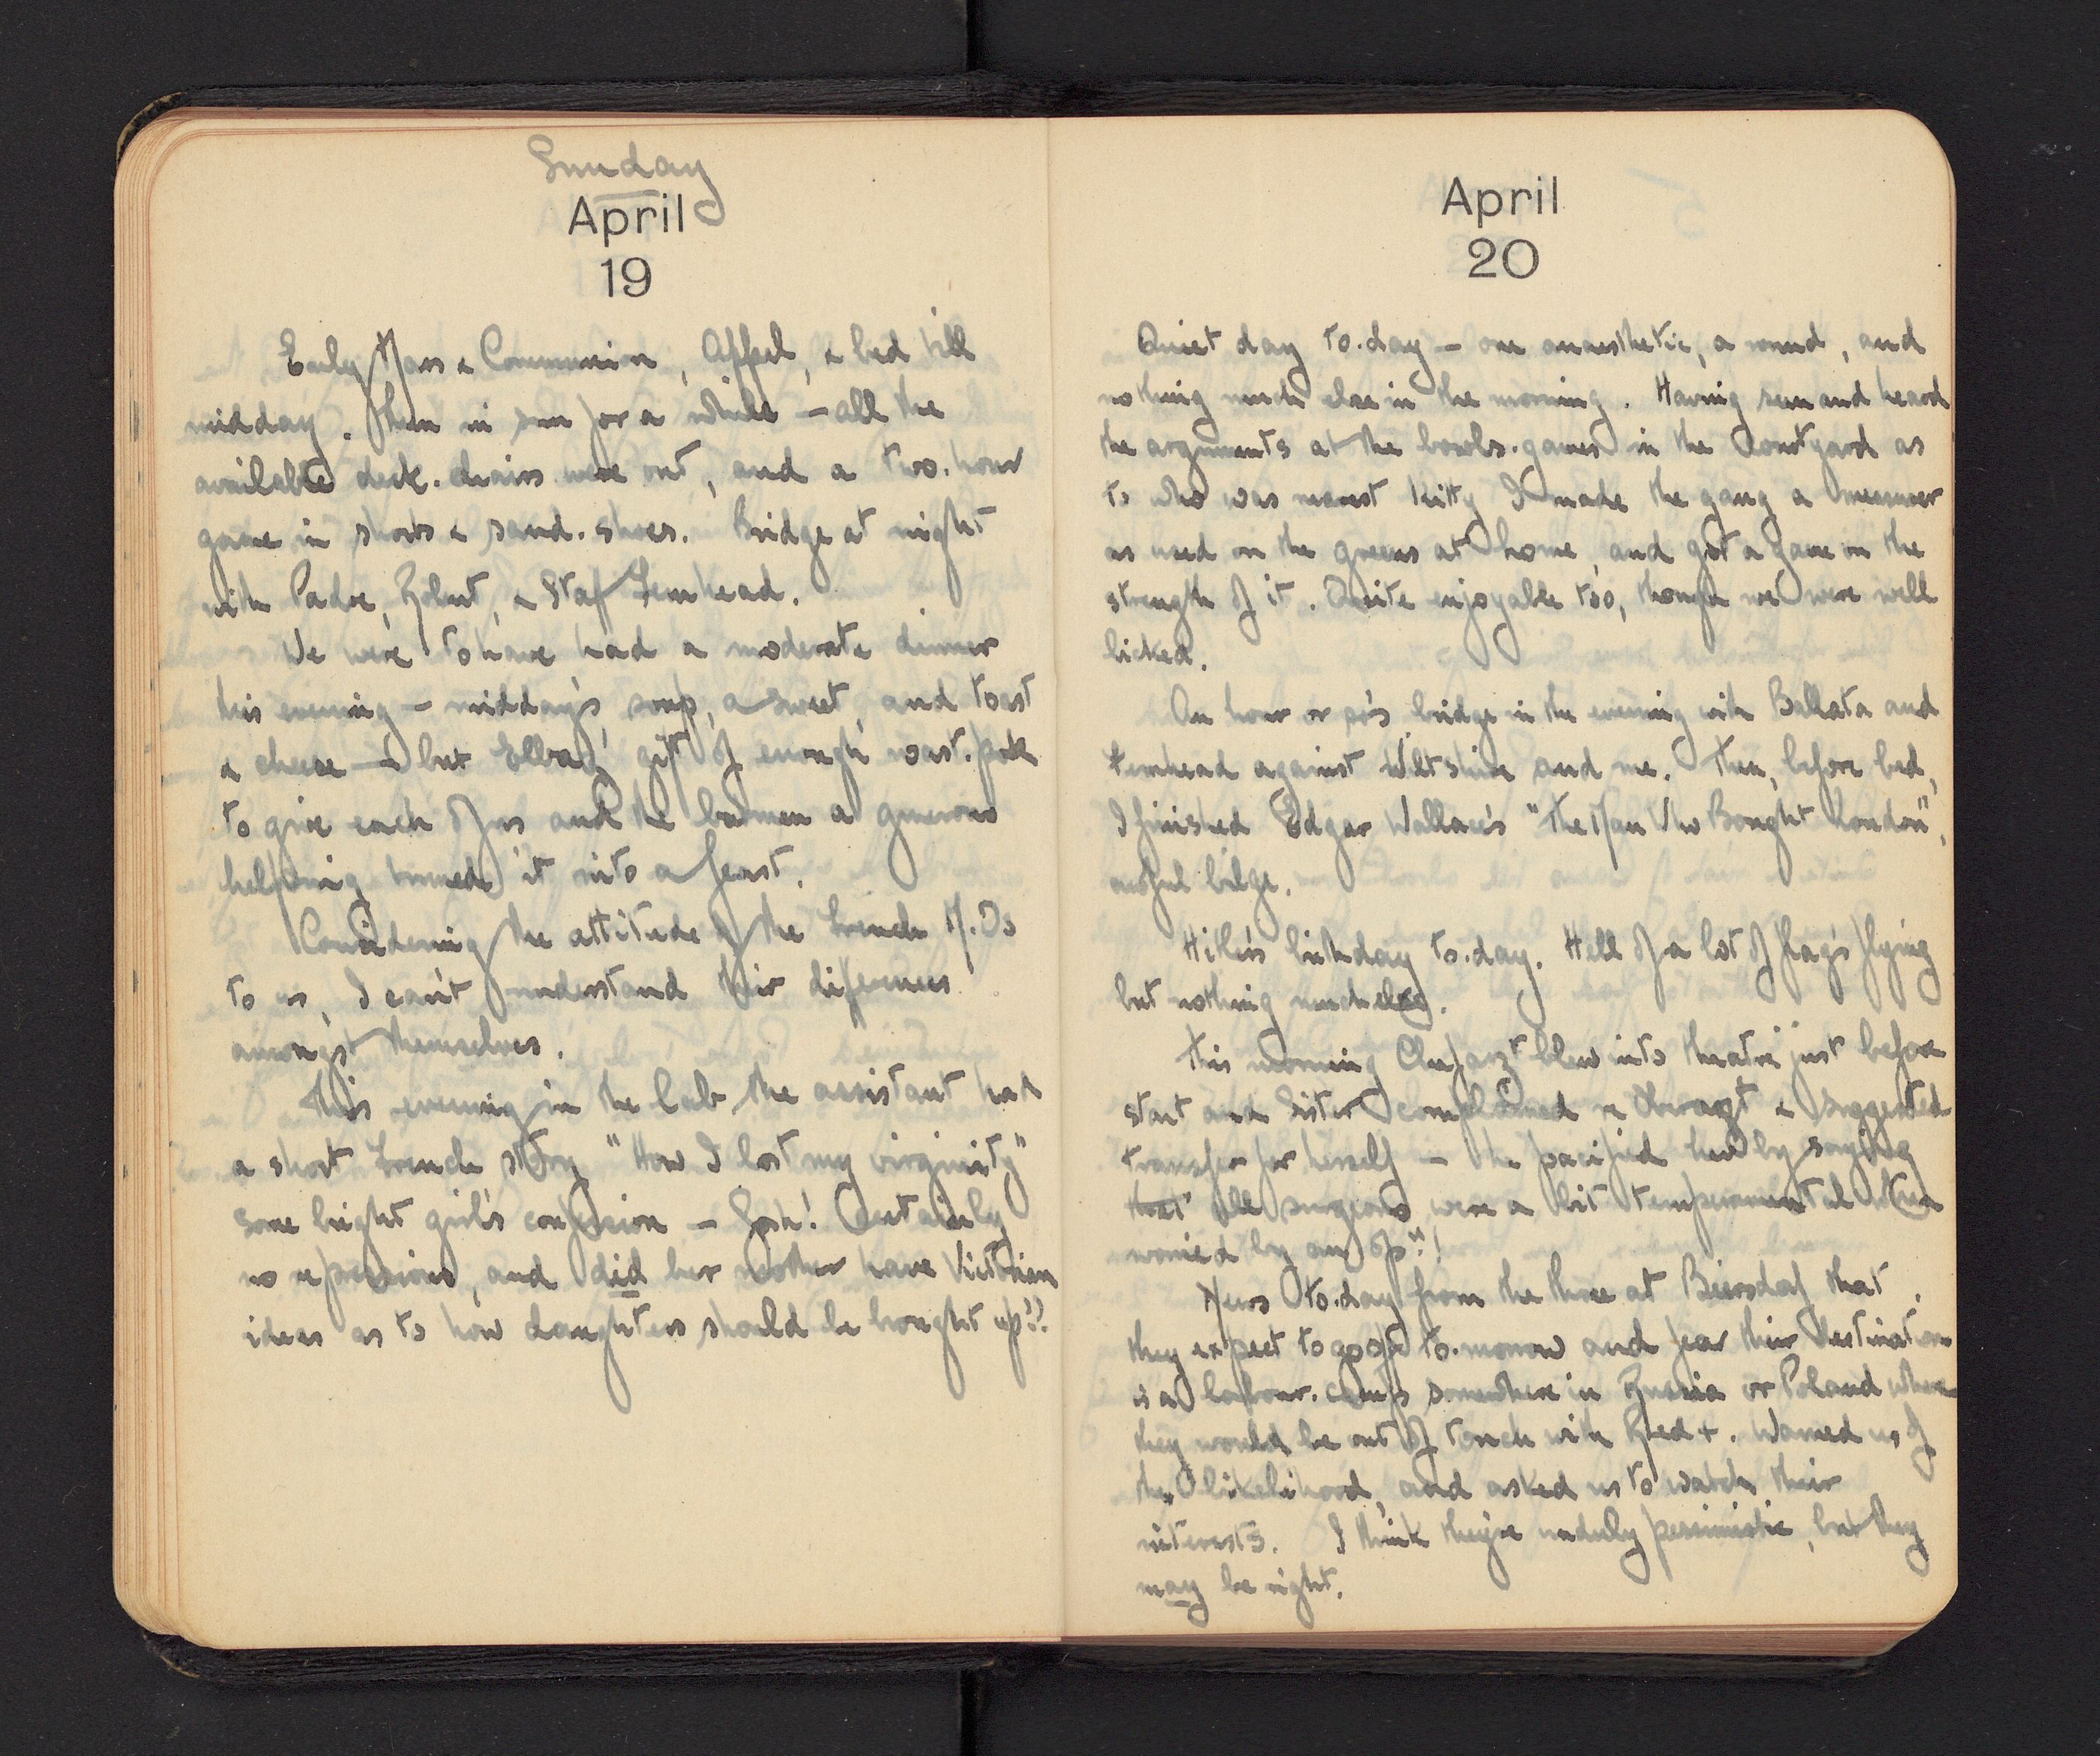 Sunday
April
19
Early Mass & Communion, Appel, & bed till
midday. Then in sun for a while – all the
available deck-chairs were out, and a two-hour
game in shorts & sand-shoes. Bridge at night
with Padre, Robert, & Staf Fernhead.
We were to have had a moderate dinner
this evening – midday's soup, a sweet, and toast
& cheese – but gift of enough roast-pork
to give each of us and the batmen a generous
helping turned it into a feast.
Considering the attitude of the French M.Os
to us, I can't understand their differences
amongst themselves.
This evening in the lab the assistant had
a short French story "How I lost my virginity"
some bright girl's confession – Gosh! Certainly
no repressions, and did her mother have Victorian
ideas as to how daughters should be brought up!?
April
20
Quiet day to-day – one anaesthetic, a round, and
nothing much else in the morning. Having seen and heard
the arguments at the bowls-games in the courtyard as
to who was nearest kitty I made the gang a measurer
as used on the greens at home, and got a game on the
strength of it. Quite enjoyable too, though we were well
licked.
An hour or so's bridge in the evening with Ballata and
Fernhead against Wiltshire and me. Then, before bed,
I finished Edgar Wallace's "The Man Who Bought London",
awful bilge.
Hitler's birthday to-day. Hell of a lot of flags flying
but nothing much else.
This morning Chefarzt blew into theatre just before
start and Sister complained re & suggested
transfer for herself – he pacified her by saying
that "all surgeons were a bit temperamental when
worried by an op"!
News to-day from the three at that
they expect to go off to-morrow and fear their destination
is a labour-camp somewhere in Russia or Poland where
they would be out of touch with Red +. Warned us of
the likelihood, and asked us to watch their
interests. I think they're unduly pessimistic, but they
may be right.